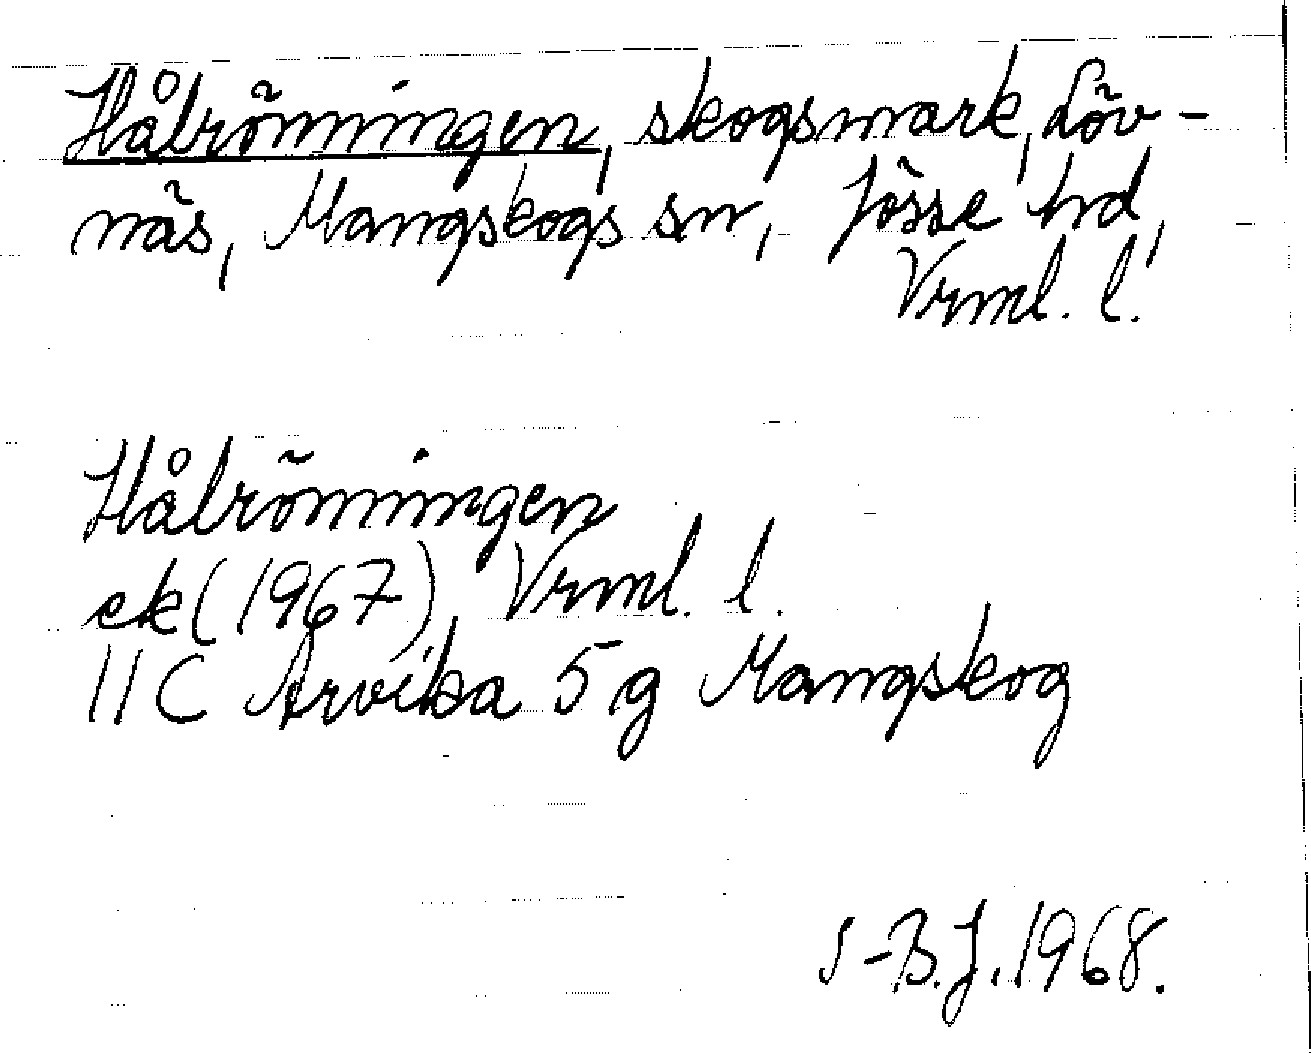 Hålrönningen, skogsmark, Löv-
näs, Mangskogs sn, Jösse hd,
Vrml. l.
Hålrönningen
ek (1967), Vrml. l.
11C Arvika 5 g Mangskog
I-B.J. 1968.